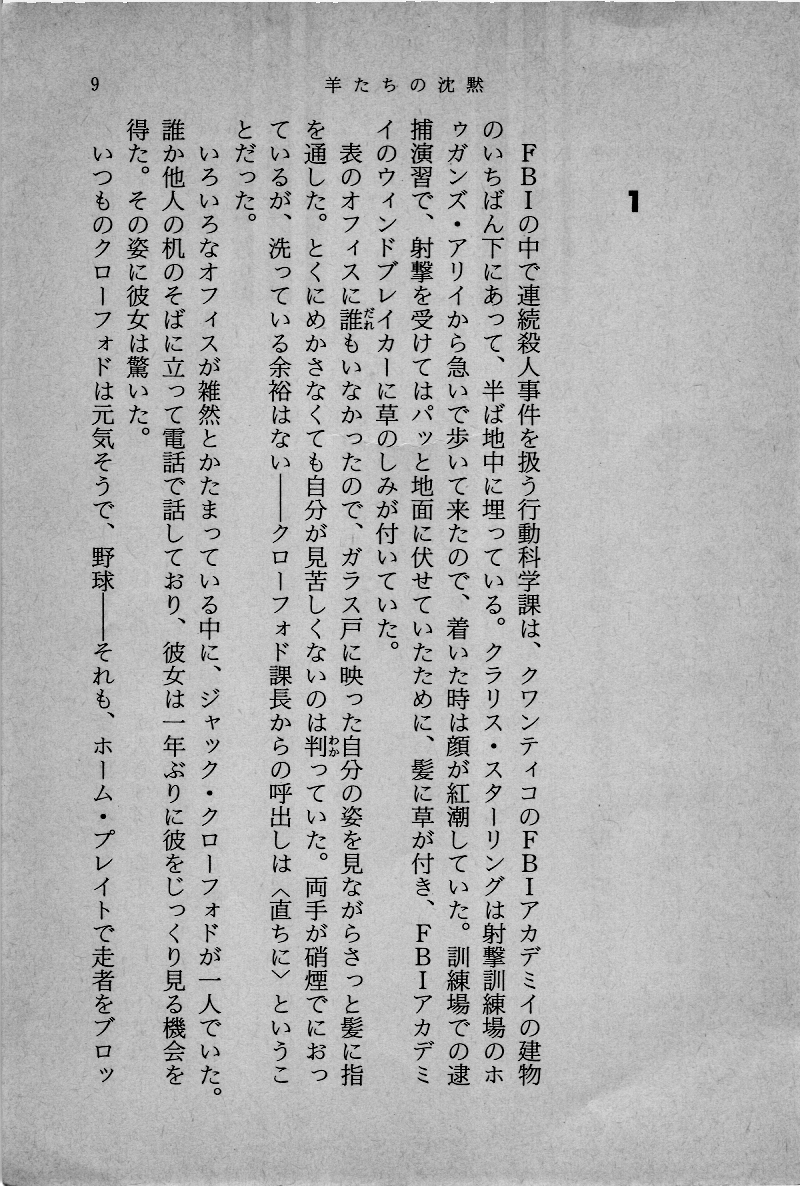 9
羊たちの沈黙
1
FBIの中で連続殺人事件を扱う行動科学課は、クワンティコのFBIアカデミイの建物
のいちばん下にあって、半ば地中に埋っている。クラリス・スターリングは射撃訓練場のホ
ゥガンズ・アリイから急いで歩いて来たので、着いた時は顔が紅潮していた。訓練場での逮
捕演習で、射撃を受けてはパッと地面に伏せていたために、髪に草が付き、FBIアカデミ
イのウィンドブレイカーに草のしみが付いていた。
表のオフィスに誰だれもいなかったので、ガラス戸に映った自分の姿を見ながらさっと髪に指
を通した。とくにめかさなくても自分が見苦しくないのは判わかっていた。両手が硝煙でにおっ
ているが、洗っている余裕はない――クローフォド課長からの呼出しは〈直ちに〉というこ
とだった。
いろいろなオフィスが雑然とかたまっている中に、ジャック・クローフォドが一人でいた。
誰か他人の机のそばに立って電話で話しており、彼女は一年ぶりに彼をじっくり見る機会を
得た。その姿に彼女は驚いた。
いつものクローフォドは元気そうで、野球――それも、ホーム・プレイトで走者をブロッ